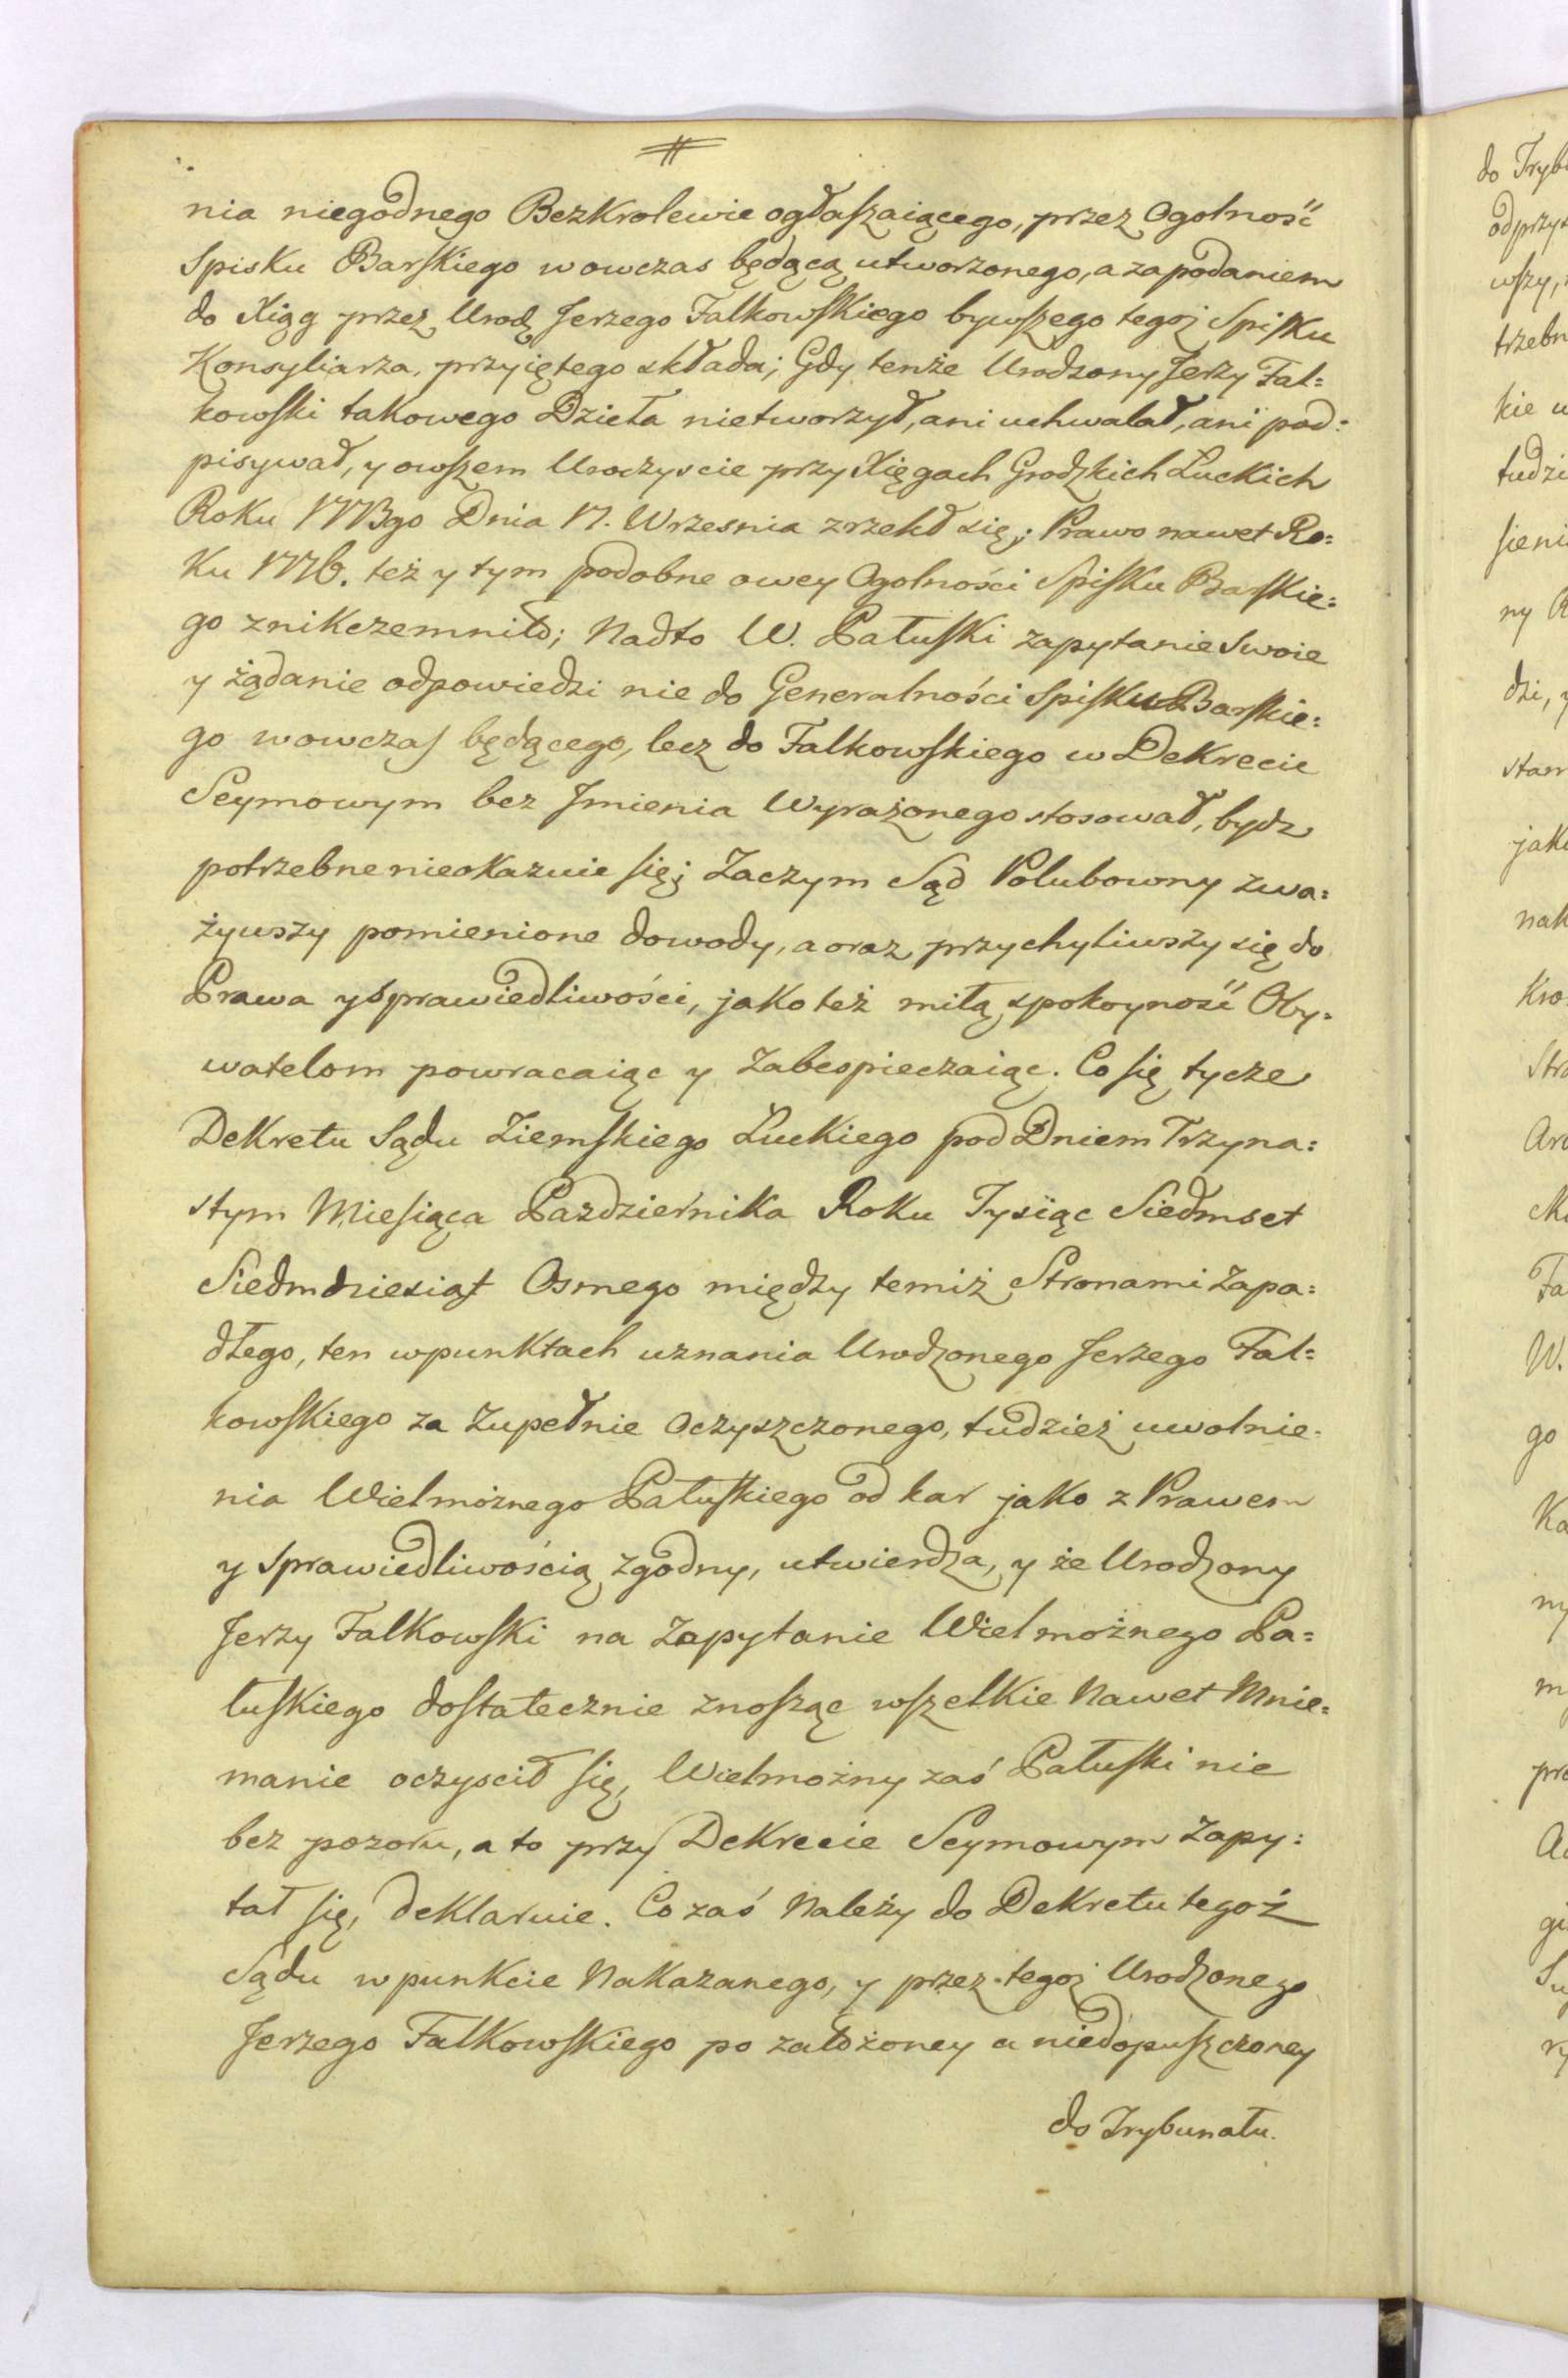 nia niegodnego BezKrolewie ogłaszaiącego, przez Ogolność
Spisku Barskiego wowczas będącą utworzonego, a za podaniem
do Xiąg przez Urodz Jerzego Falkowskiego bywszego tegoż Spisku
Konsyliarza, przyiętego składa; Gdy tenże Urodzony Jerzy Fal=
kowski takowego Dzieła nietworzył, ani uchwalał, ani pod=
pisywał, y owszem Uroczyscie przy Xięgach Grodzkich Łuckich
Roku 1773go Dnia 17. Wrzesnia zrzekł się; Prawo nawet Ro=
Ku 1776. też y tym podobne owey Ogolności Spisku Barskie=
go znikczemniło; Nadto W. Pałuski zapytanie Swoie
y żądanie odpowiedzi nie do Generalności Spisku Barskie=
go wowczas będącego, lecz do Falkowskiego w DeKrecie
Seymowym bez Jmienia Wyrażonego stosował, bydz
potrzebne nieokazuie się; Zaczym Sąd Polubowny zwa=
żywszy pomienione dowody, a oraz przychyliwszy się do
Prawa y Sprawiedliwości, jako też miłą spokoyność Oby=
watelom powracaiąc y Zabespieczaiąc. Co się tycze
DeKretu Sądu Ziemskiego Łuckiego pod Dniem Trzyna=
stym Miesiąca Pazdziernika Roku Tysiąc Siedmset
Siedmdziesiąt Osmego między temiż Stronami Zapa=
dłego, ten w punktach uznania Urodzonego Jerzego Fal=
kowskiego za Zupełnie Oczyszczonego, tudzież uwolnie=
nia Wielmożnego Pałuskiego od kar jako z Prawem
y Sprawiedliwością Zgodny, utwierdza, y że Urodzony
Jerzy Falkowski na Zapytanie Wielmożnego Pa=
łuskiego dostatecznie znosząc wszelkie Nawet Mnie=
manie oczyscił się, Wielmożny zaś Pałuski nie
bez pozoru, a to przy DeKrecie Seymowym Zapy=
tał się, deklaruie. Co zaś Należy do Dekretu tegoż
Sądu w punkcie Nakazanego, y przez tegoż Urodzonego
Jerzego Falkowskiego po założoney a niedopuszczoney
do Trybunału.
do Tryb
odprzys
wszy,
trzebn
kie
tudzi
sieni
ny
dzi,
stan
jako
nak
Kro
Stro
Fa
W.
go
Ka
ny